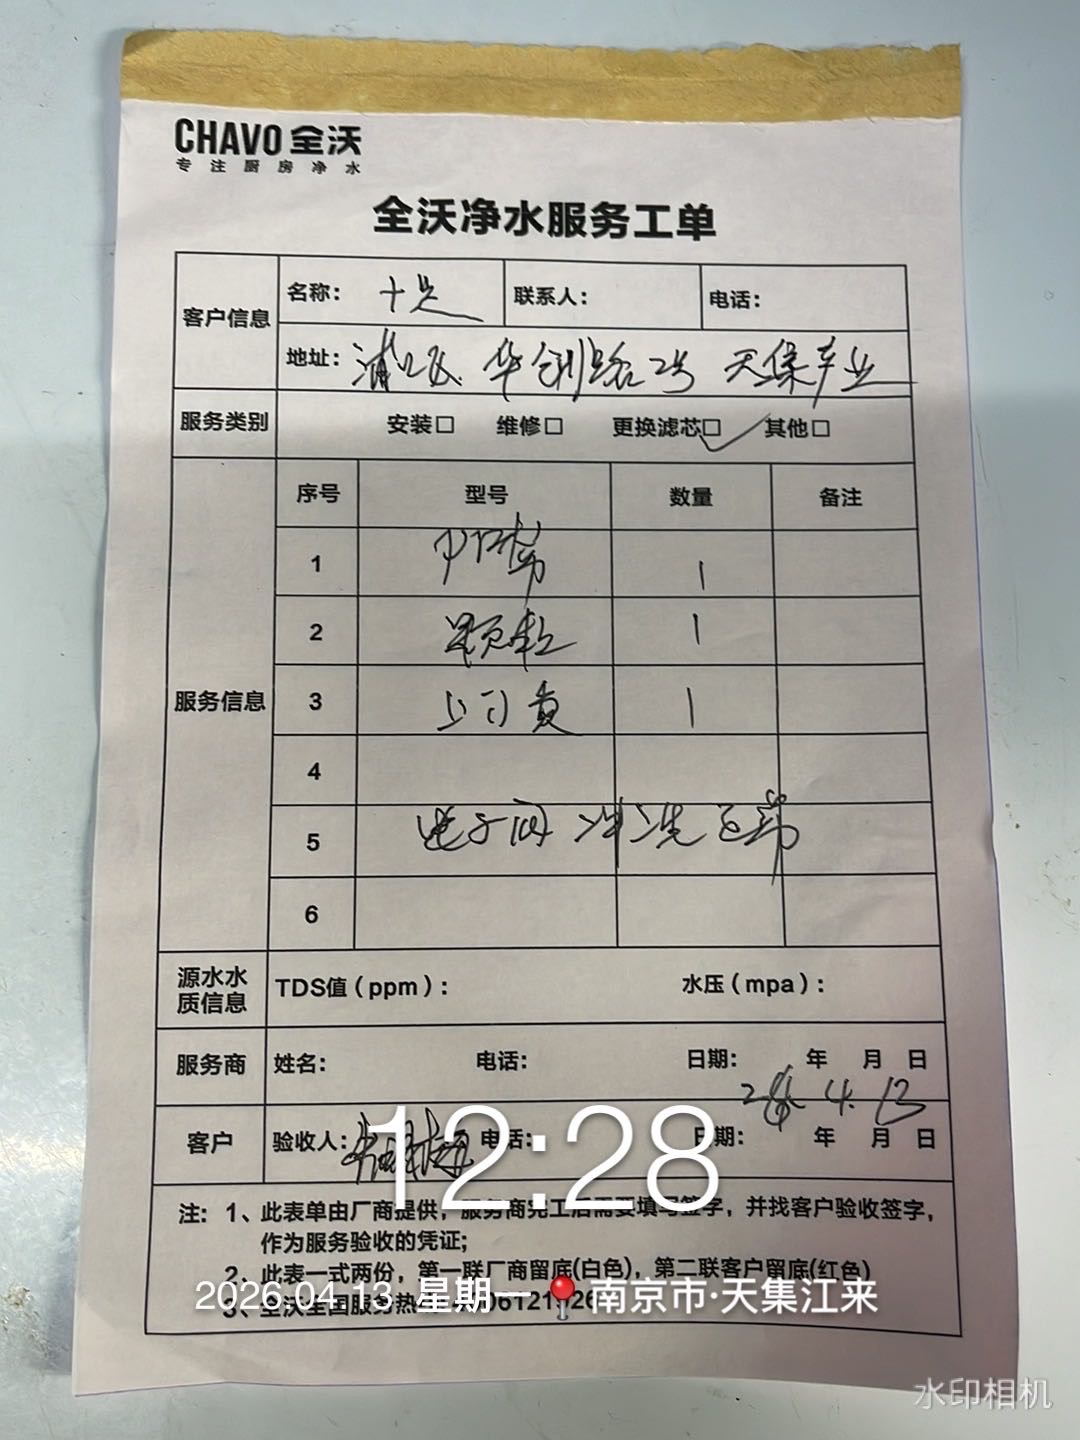 CHAVO 全沃
专注厨房净水
全沃净水服务工单
客户信息 名称： 联系人： 电话：
地址： 浦口区 华创路2号 天保产业
服务类别 安装□ 维修□ 更换滤芯□✓ 其他□
服务信息 序号 型号 数量 备注
1 PP棉 1
2 颗粒 1
3 1
4
5 电子阀 冲洗正常
6
源水水质信息 TDS值（ppm）： 水压（mpa）：
服务商 姓名： 电话： 日期： 年 月 日
26. 4. 13
客户 验收人： 电话： 日期： 年 月 日
12:28
注：1、此表单由厂商提供，服务商完工后需要填写签字，并找客户验收签字，
作为服务验收的凭证；
2、此表一式两份，第一联厂商留底(白色)，第二联客户留底(红色)
3、全沃全国服务热
2026.04.13 星期一 南京市·天集江来
水印相机